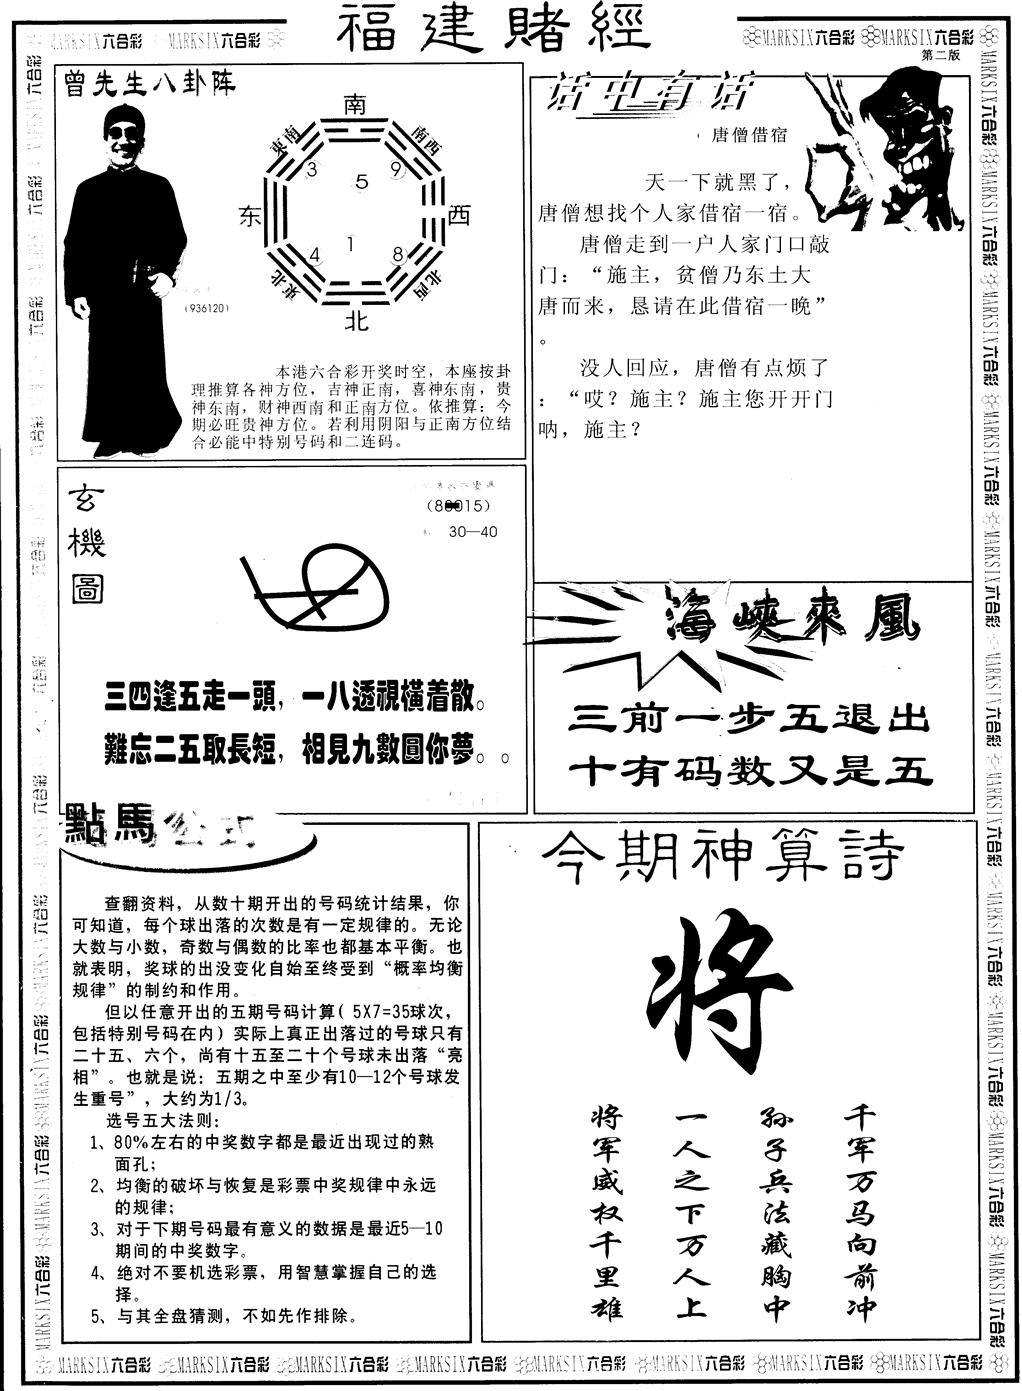 福建賭經
MARKSIX六合彩 MARKSIX六合彩
MARKSIX六合彩 MARKSIX六合彩
第二版
曾先生八卦阵
南
東南 南西
3 5 9
东 西
4 1 8
東北 北西
北
(936120)
本港六合彩开奖时空，本座按卦
理推算各神方位，吉神正南，喜神东南，贵
神东南，财神西南和正南方位。依推算：今
期必旺贵神方位。若利用阴阳与正南方位结
合必能中特别号码和二连码。
话中有话
唐僧借宿
天一下就黑了，
唐僧想找个人家借宿一宿。
唐僧走到一户人家门口敲
门：“施主，贫僧乃东土大
唐而来，恳请在此借宿一晚”
。
没人回应，唐僧有点烦了
：“哎？施主？施主您开开门
呐，施主？
玄機圖
30—40
三四逢五走一頭，一八透視橫着散。
難忘二五取長短，相見九數圓你夢。。
海峽來風
三前一步五退出
十有码数又是五
點馬公式
查翻资料，从数十期开出的号码统计结果，你
可知道，每个球出落的次数是有一定规律的。无论
大数与小数，奇数与偶数的比率也都基本平衡。也
就表明，奖球的出没变化自始至终受到“概率均衡
规律”的制约和作用。
但以任意开出的五期号码计算( 5X7=35球次，
包括特别号码在内) 实际上真正出落过的号球只有
二十五、六个，尚有十五至二十个号球未出落“亮
相”。也就是说：五期之中至少有10—12个号球发
生重号”，大约为1/3。
选号五大法则：
1、80%左右的中奖数字都是最近出现过的熟
面孔；
2、均衡的破坏与恢复是彩票中奖规律中永远
的规律；
3、对于下期号码最有意义的数据是最近5—10
期间的中奖数字。
4、绝对不要机选彩票，用智慧掌握自己的选
择。
5、与其全盘猜测，不如先作排除。
今期神算詩
将
千军万马向前冲
孙子兵法藏胸中
一人之下万人上
将军威权千里雄
MARKSIX六合彩 MARKSIX六合彩 MARKSIX六合彩 MARKSIX六合彩 MARKSIX六合彩 MARKSIX六合彩 MARKSIX六合彩 MARKSIX六合彩